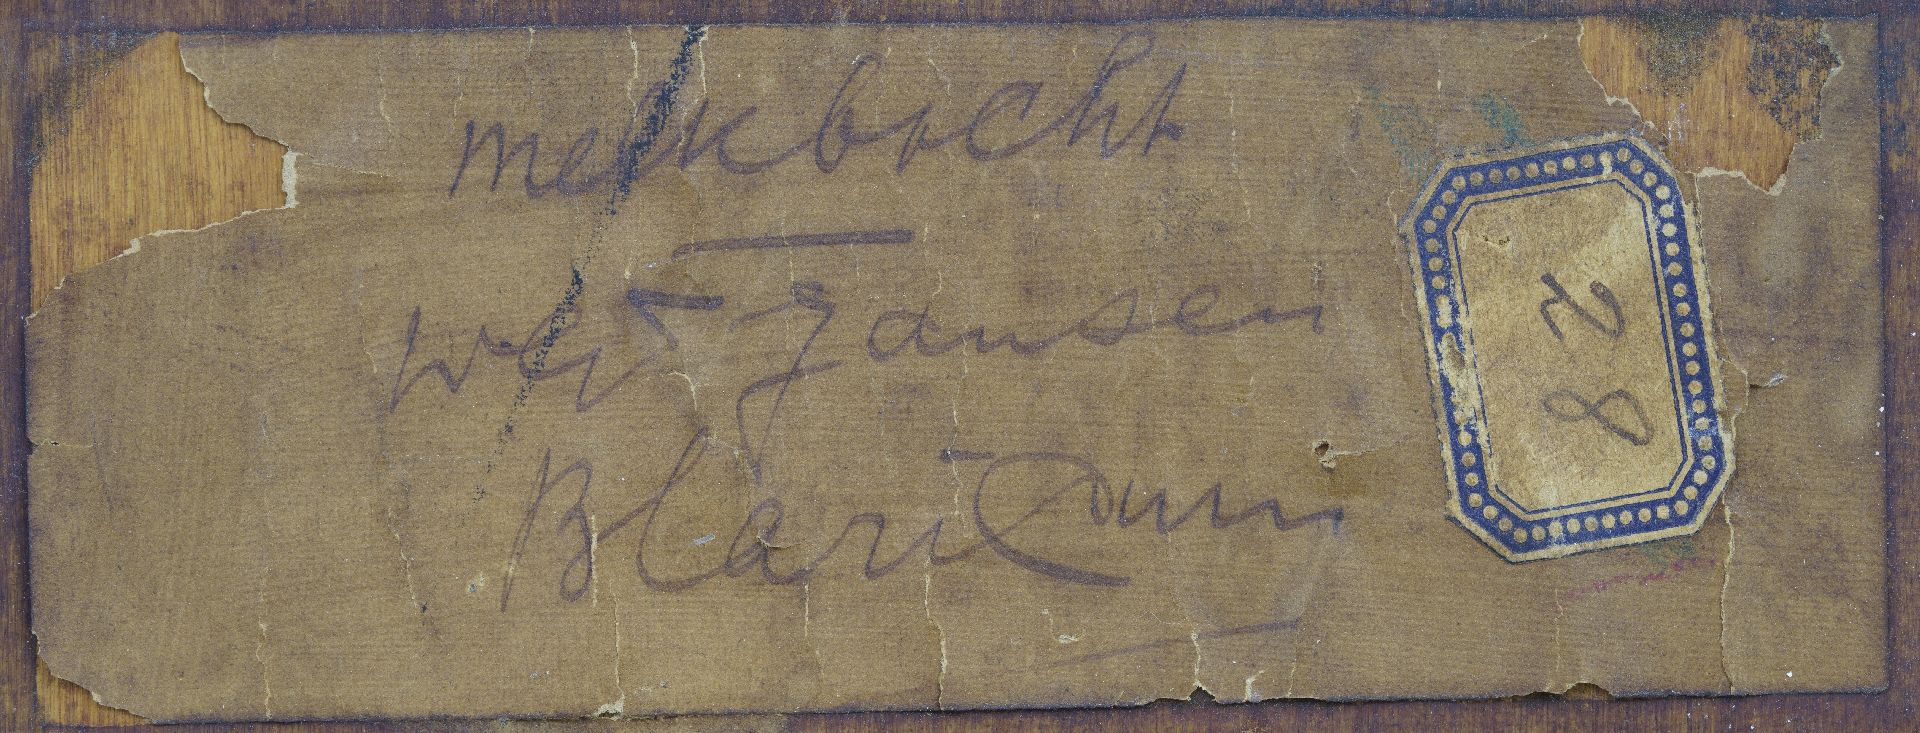 melkbocht
wed Jansen
Blaricum
28